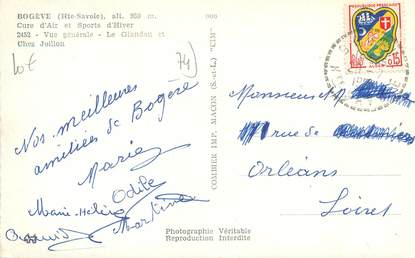 BOGÈVE (Hte-Savoie), alt. 950 m.
Cure d'Air et Sports d'Hiver
2452 - Vue générale - Le Glandau et
Chez Juillon
10€
74)
Nos meilleures
amitiés de Bogève
Marie
Odile
Marie-Hélène
Martine
COMBIER IMP. MACON (S.-et-L.) "CIM"
REPUBLIQUE FRANÇAISE
0,15
Monsieur et M
rue de
Orléans
Loiret
Photographie Véritable
Reproduction Interdite